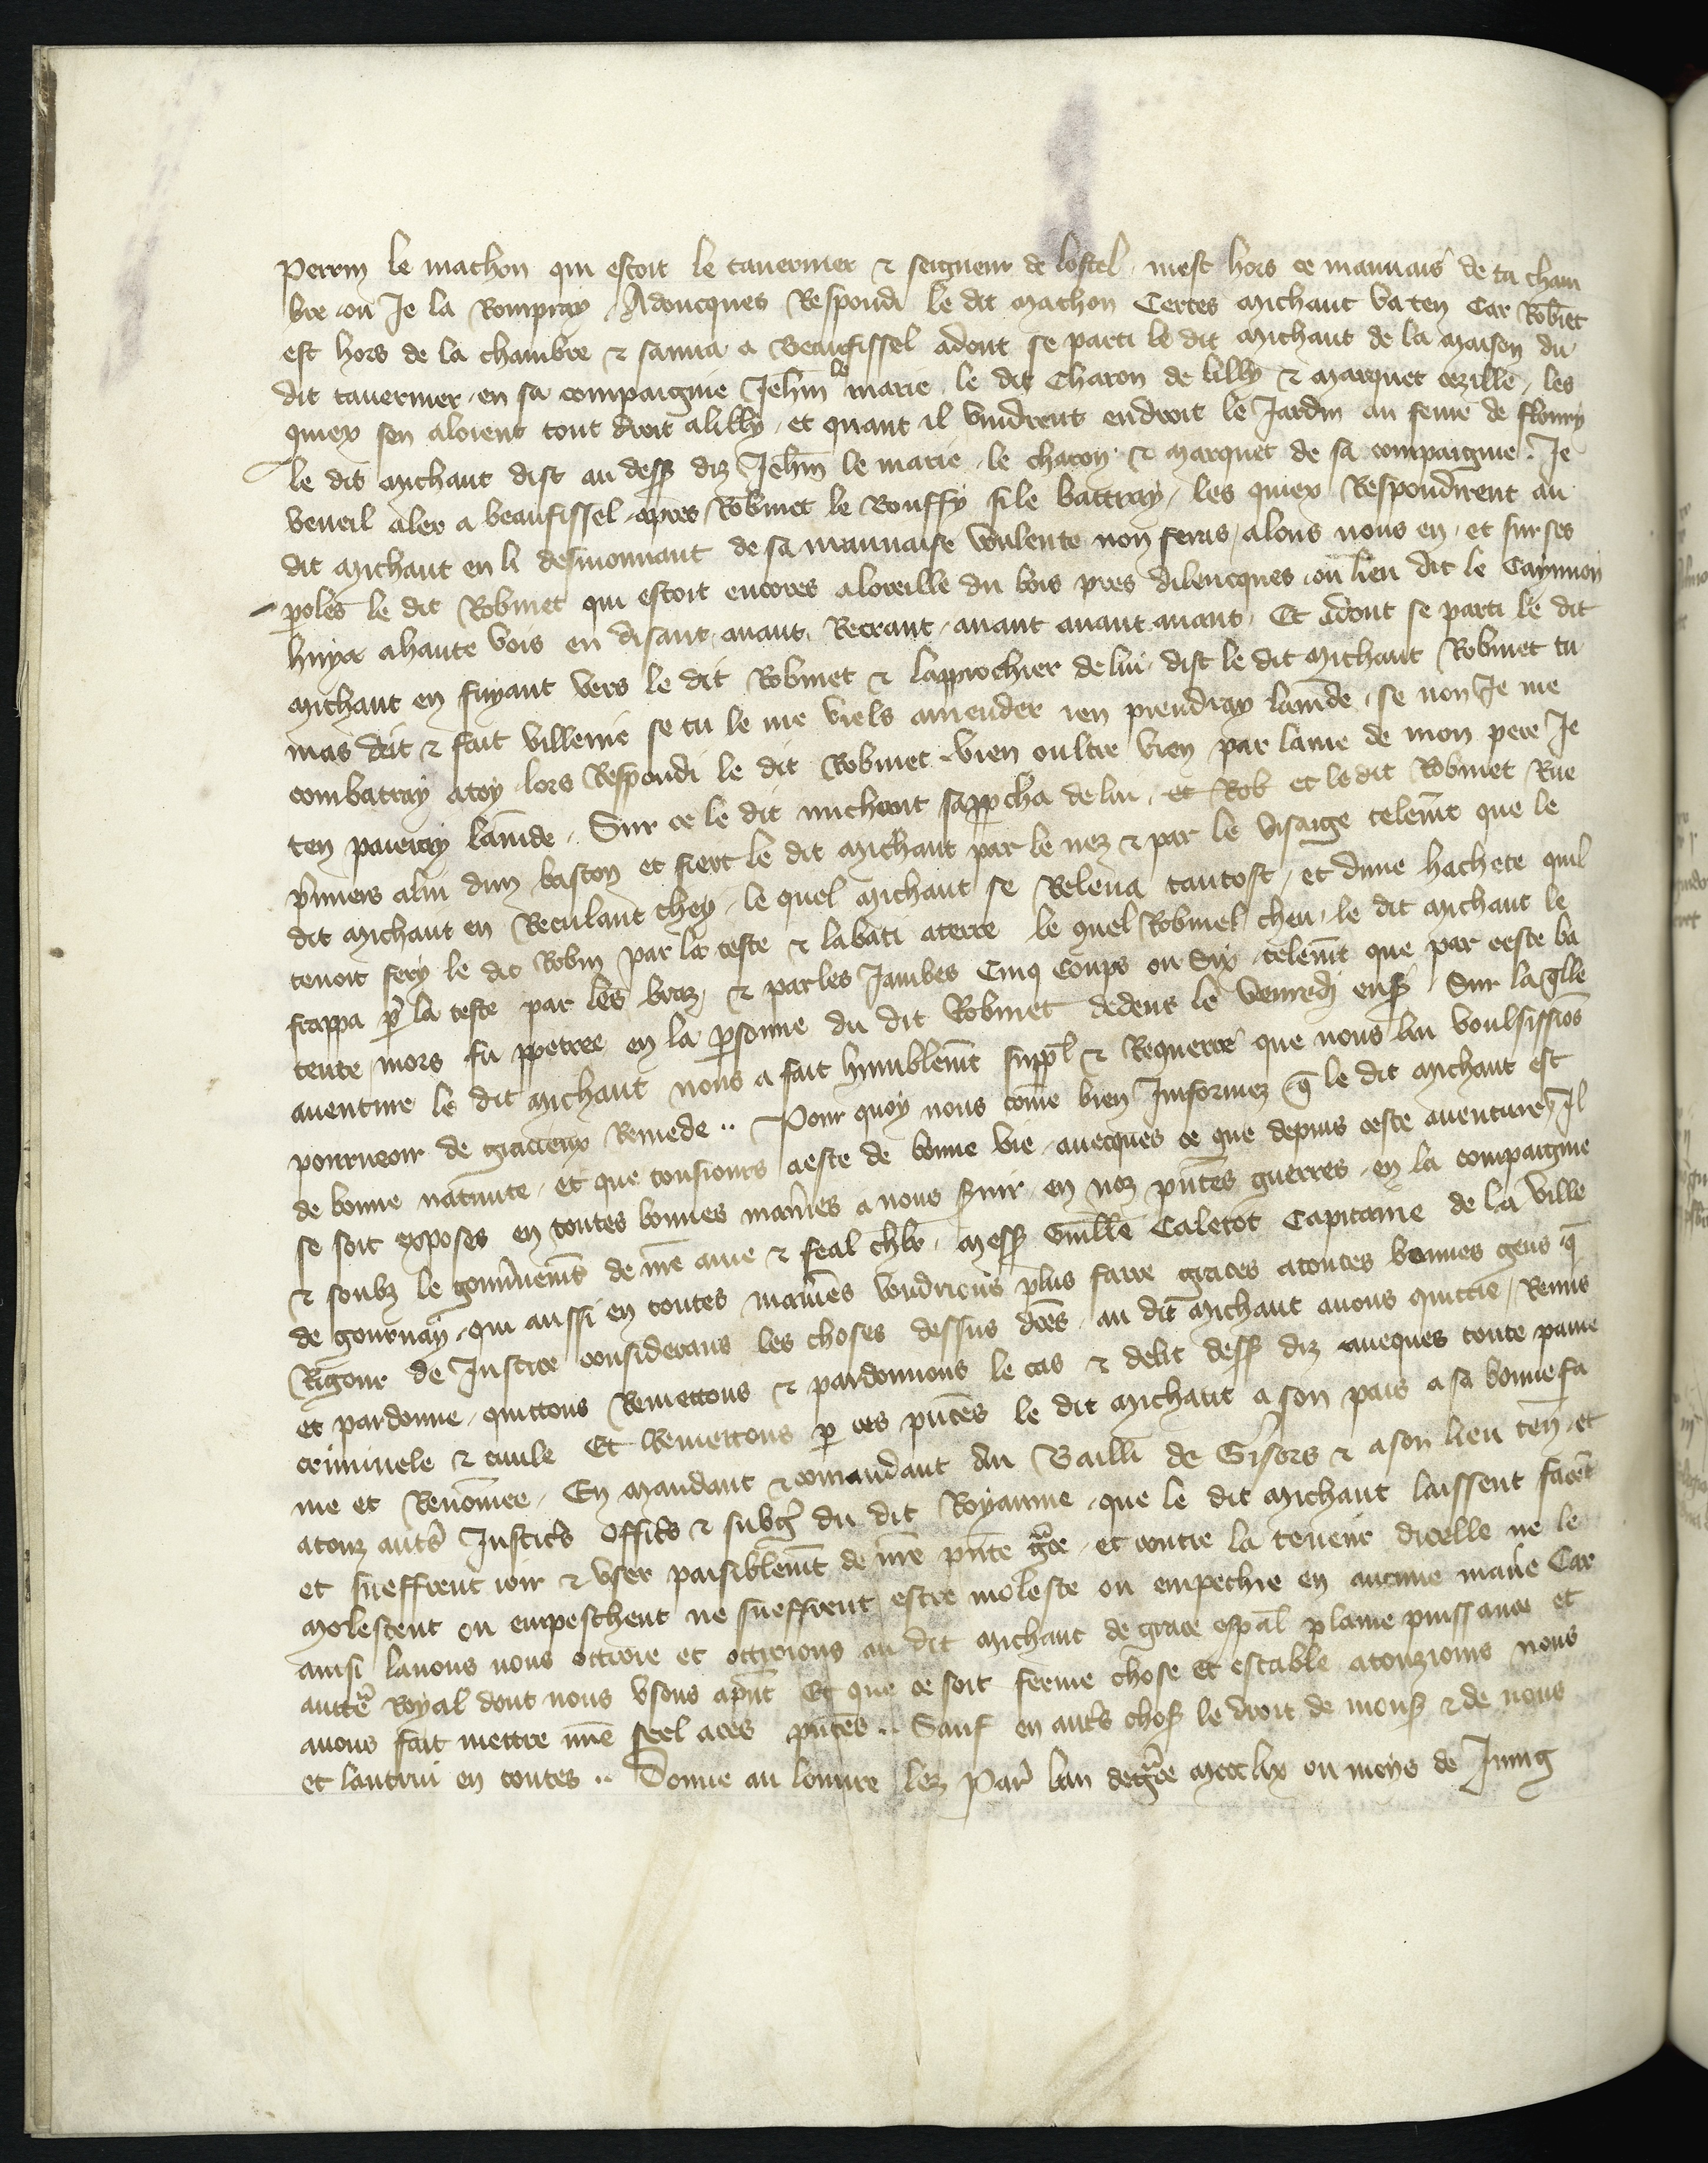 Perrin le machon qui estoit le tauernier & seigneur de lostel, mest hors ce mauuais de ta cham
bre ou Je la Rompray. Adoncques Respondi le dit machon Certes michaut va ten Car Robiet
est hors de la chambre & sanna a Beaufissel adont se parti le dit michaut de la maison du
dit tauernier, en sa compaignie Jehan le marie, le dit Charon de lilly & marquet cezille, les
quiex sen aloient tout droit a lilly, et quant il vindrent endroit le Jardin au feme de floury
le dit michaut dist au dess diz Jehan le marie, le charon & marquet de sa compaignie. Je
veueil aler a beaufissel apres Robinet le Bouffy si le battray, les quiex Respondirent au
dit michaut en li desmonnant de sa mauuaise voulente non feras, alons nous en, et sur ses
poles le dit Robinet qui estoit encores a loreille du bois pres dilencques ou lieu dit le Caymion
huya a haute vois en disant, auant, Recrant, auant auant auant, Et adont se parti le dit
michaut en fuyant vers le dit Robinet & lapprochier de lui, dist le dit michaut Robinet tu
mas dit & fait villenie se tu le me viels amender ien prendray lamde, se non Je me
combatray a toy, lors Respondi le dit Robinet, vien oultre vien par lame de mon pere Je
ten paieray lamde. Sur ce le dit michaut sapp cha de lui, et Rob et le dit Robinet Rue
pmiers a lui dun baston et fiert le dit michaut par le nez & par le visaige telemt que le
dit michaut en Reculant chey, le quel michaut se Releua tantost, et dune hachete quil
tenoit fery le dit Robin par la teste & labati a terre le quel Robinet cheu, le dit michaut le
frappa p la teste par les braz, & par les Jambes Cinq coups ou Six, telemt que par ceste ba
teure, mors fu ppetree en la psonne du dit Robinet dedens le venredi ens. Sur la qlle
auenture le dit michaut nous a fait humblemt suppl & Requerre que nous lui voulsissions
pourueoir de gracieux Remede.. Pour quoy nous come bien Informez q le dit michaut est
de bonne nature, et que tousiours a este de bonne vie, auecques ce que depuis ceste auenture, Il
se soit exposes en toutes bonnes manies a nous suir, en noz pntes guerres, en la compaignie
& soubz le gouunemt de nre ame & feal chlr, mess Guille Caletot Capitaine de la ville
de gournay, qui aussi en toutes manies voudrions plus faire graces a toutes bonnes gens q
Rigour de Justice considerans les choses dessus dces, au dit michaut auons quittie, Remis
et pardonne, quittons Remettons & pardonnons le cas & delit dess diz auecques toute paine
criminele & ciuile Et Remettons p ces pntes le dit michaut a son pais a sa bonne fa
me et Renomee. En mandant & comandant au Bailli de Gisors & a son lieu ten, et
a touz auts Justics offics & subg du dit Royaume, que le dit michaut laissent facet
et sueffrent ioir & vser paisiblemt de nre pnte gce, et contre la teneur dicelle ne le
molestent ou empeschent ne sueffrent estre moleste ou empechie en aucune manie Car
ainsi lauons nous ottroie et ottroions au dit michaut de grace espal plaine puissance et
auttte Royal dont nous vsons apnt Et que ce soit ferme chose et estable a touziours nous
auons fait mettre nre seel a ces pntes.. Sauf en auts chos le droit de mons & de nous
et lautrui en toutes.. Donne au louure lez Par lan de gce mccclix ou moys de Juing